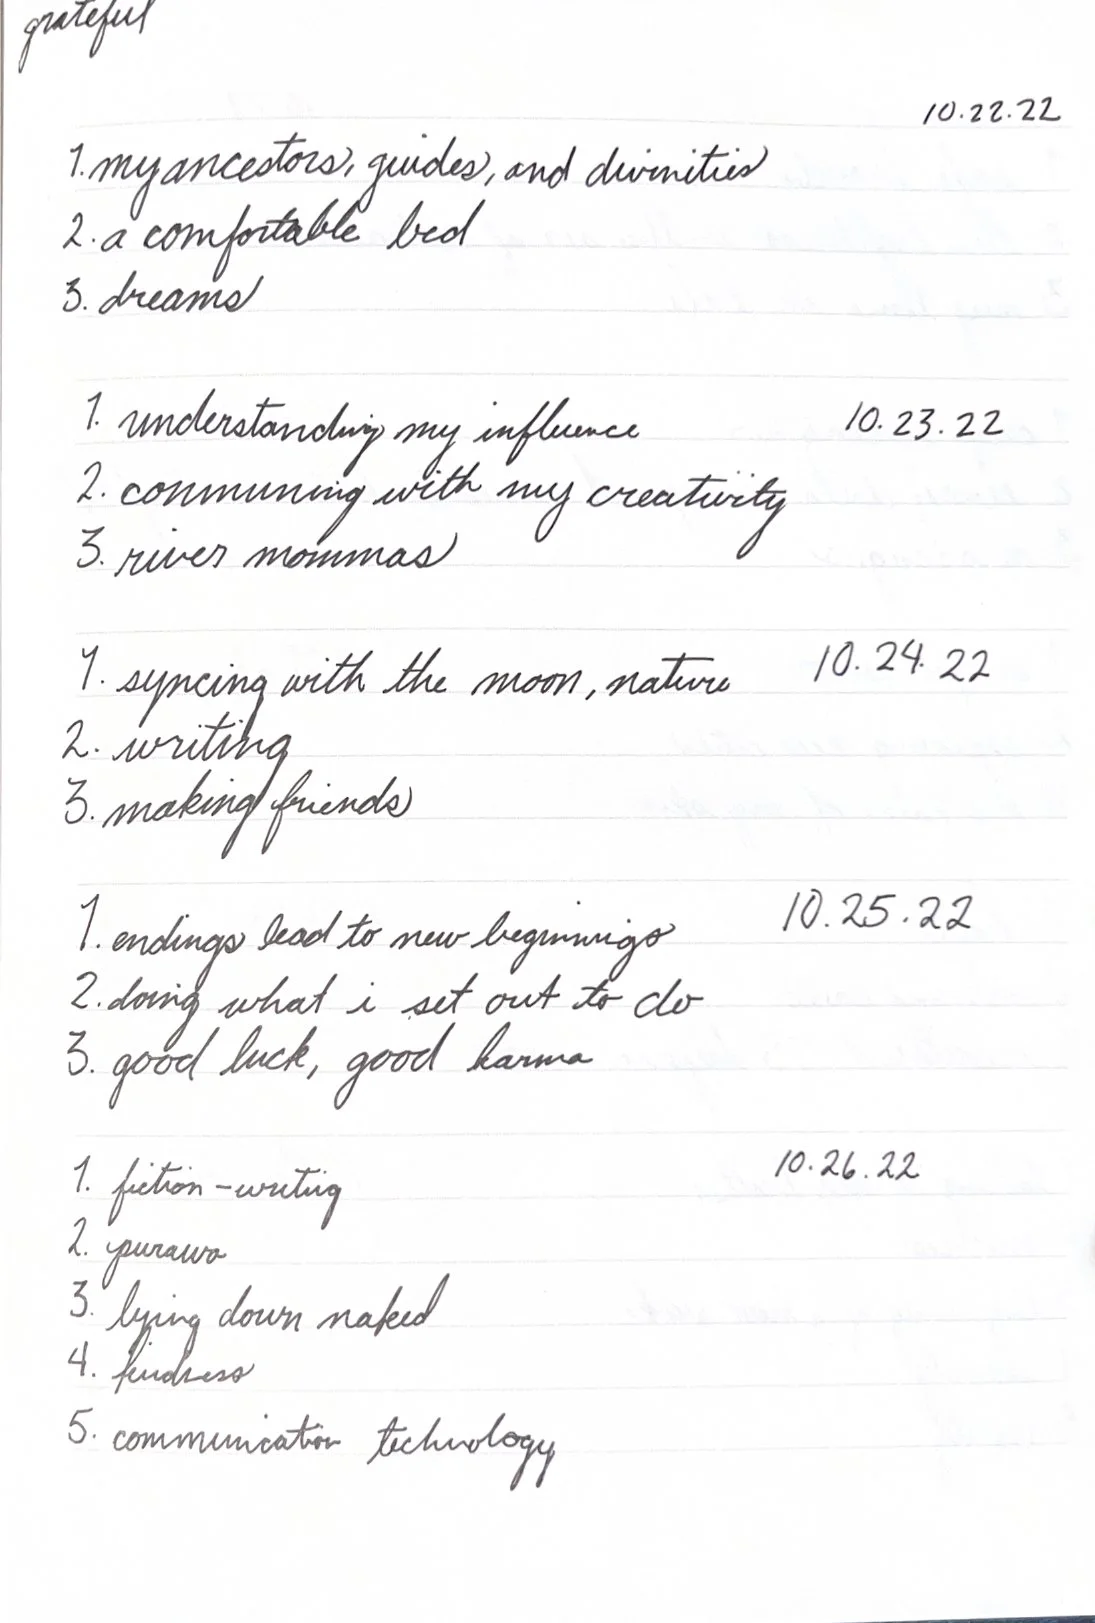 grateful
10.22.22
1. my ancestors, guides, and divinities
2. a comfortable bed
3. dreams
1. understanding my influence 10.23.22
2. communing with my creativity
3. river mommas
1. syncing with the moon, nature 10.24.22
2. writing
3. making friends
1. endings lead to new beginnings 10.25.22
2. doing what i set out to do
3. good luck, good karma
1. fiction-writing 10.26.22
2.
3. lying down naked
4. kindness
5. communication technology